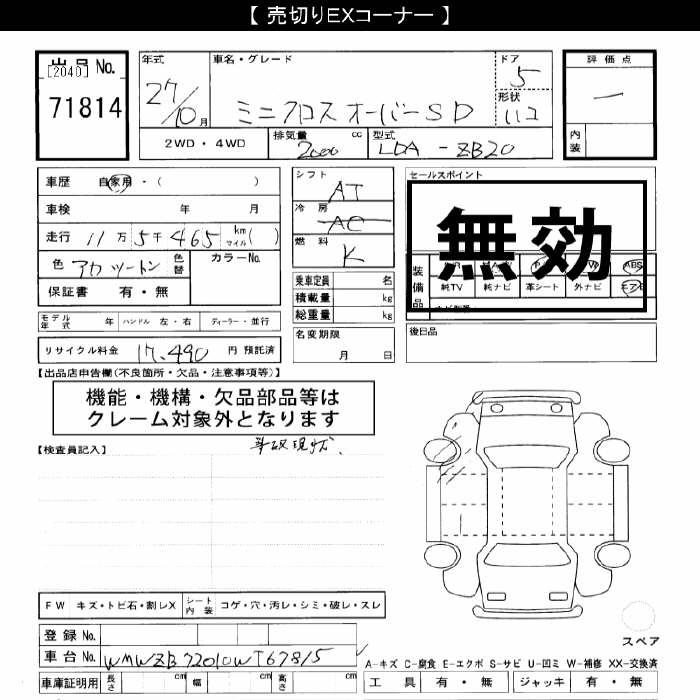 【 売切りEXコーナー 】
出品 No.
[2040]
71814
年式
27/10 月
車名・グレード
ミニクロスオーバーSD
ドア
5
形状
ハコ
評価点
内装
2WD・4WD
排気量 cc
2000
型式
LDA-ZB20
車歴 自家用・( )
車検 年 月
走行 11万5千465 km マイル( )
色 アカツートン 色替 カラーNo.
保証書 有・無
モデル年式 年 ハンドル 左・右 ディーラー・並行
リサイクル料金 17,490 円 預託済
シフト AT
冷房 AC
燃料 K
乗車定員 名
積載量 kg
総重量 kg
名変期限
月 日
セールスポイント
無効
装備品
ABS
純TV 純ナビ 革シート 外ナビ エアB
後日品
【出品店申告欄(不良箇所・欠品・注意事項等)】
機能・機構・欠品部品等は
クレーム対象外となります
事故現状
【検査員記入】
FW キズ・トビ石・割レX シート内装 コゲ・穴・汚レ・シミ・破レ・スレ
登録 No.
車台 No. WMWZB72010WT67815
車庫証明用 長さ cm 幅 cm 高さ cm
スペア
A-キズ C-腐食 E-エクボ S-サビ U-凹ミ W-補修 XX-交換済
工具 有・無 ジャッキ 有・無